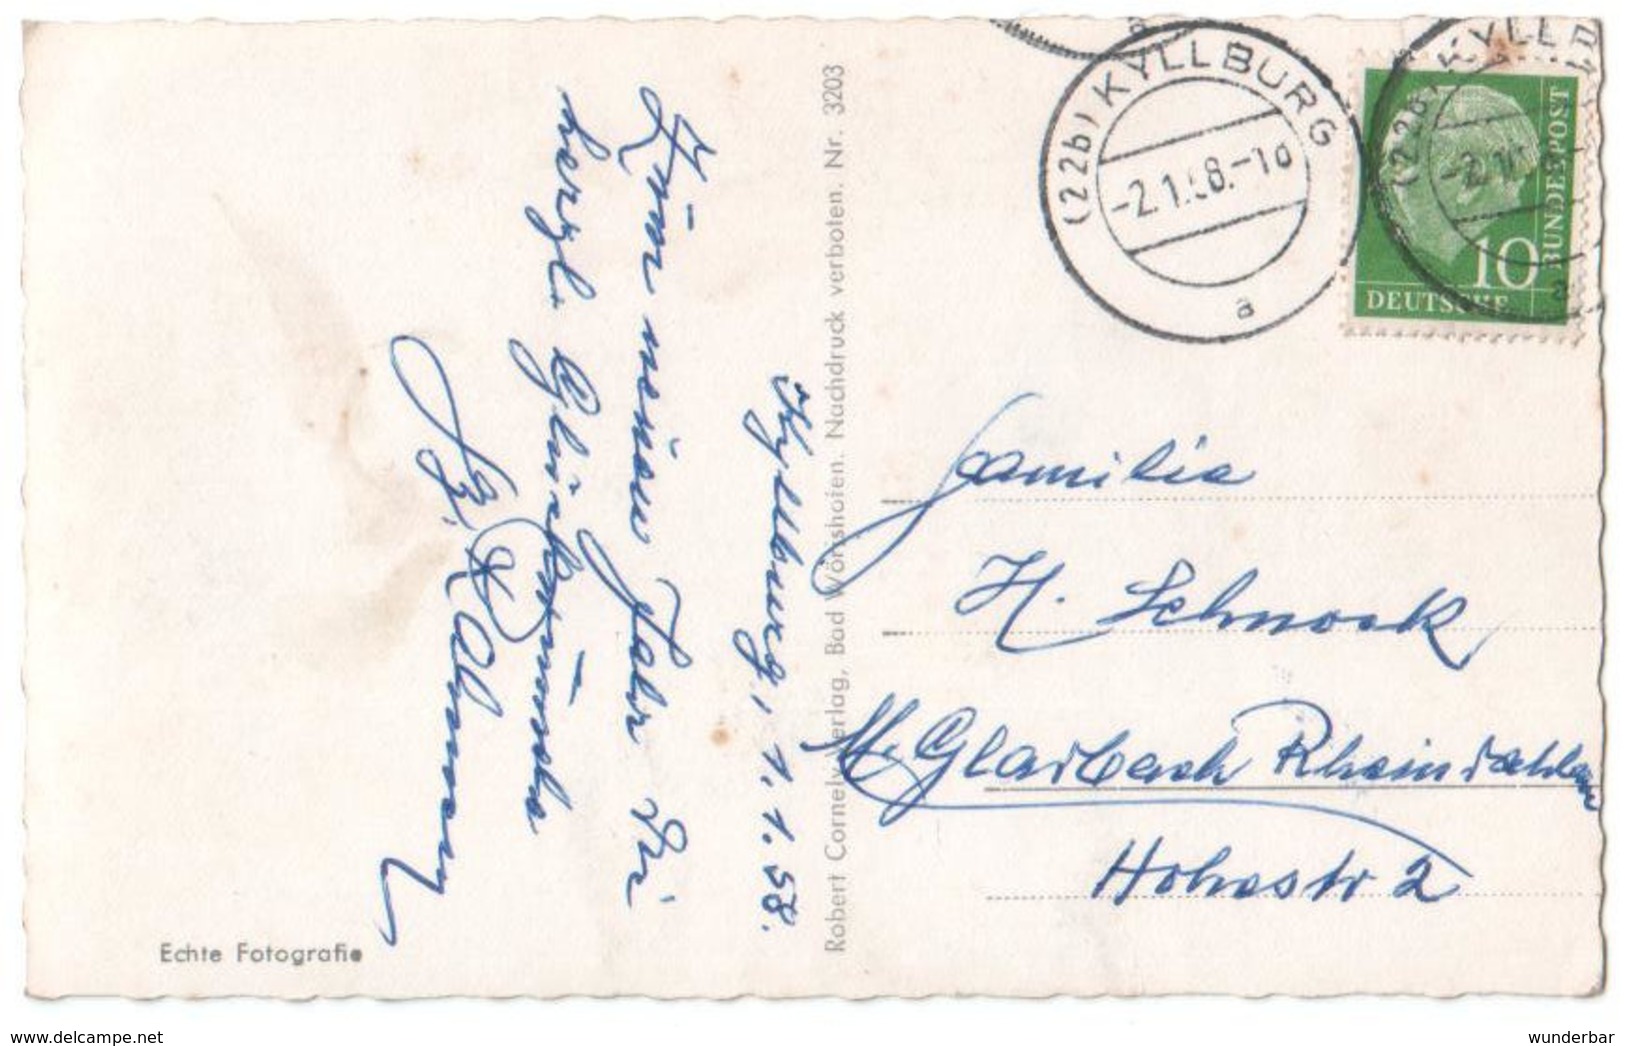 Kyllburg, 1.1.58.
Zum neuen Jahr die
herzl. Glückwünsche
Robert Cornely Verlag, Bad Wörishofen. Nachdruck verboten. Nr. 3203
Echte Fotografie
(22b) KYLLBURG
-2.1.58.-10
a
(22b) KYLLB
-2.1
a
10
DEUTSCHE
BUNDESPOST
Familie
H. Schnock
M. Gladbach Rheindahlen
Hohestr 2
www.delcampe.net
wunderbar